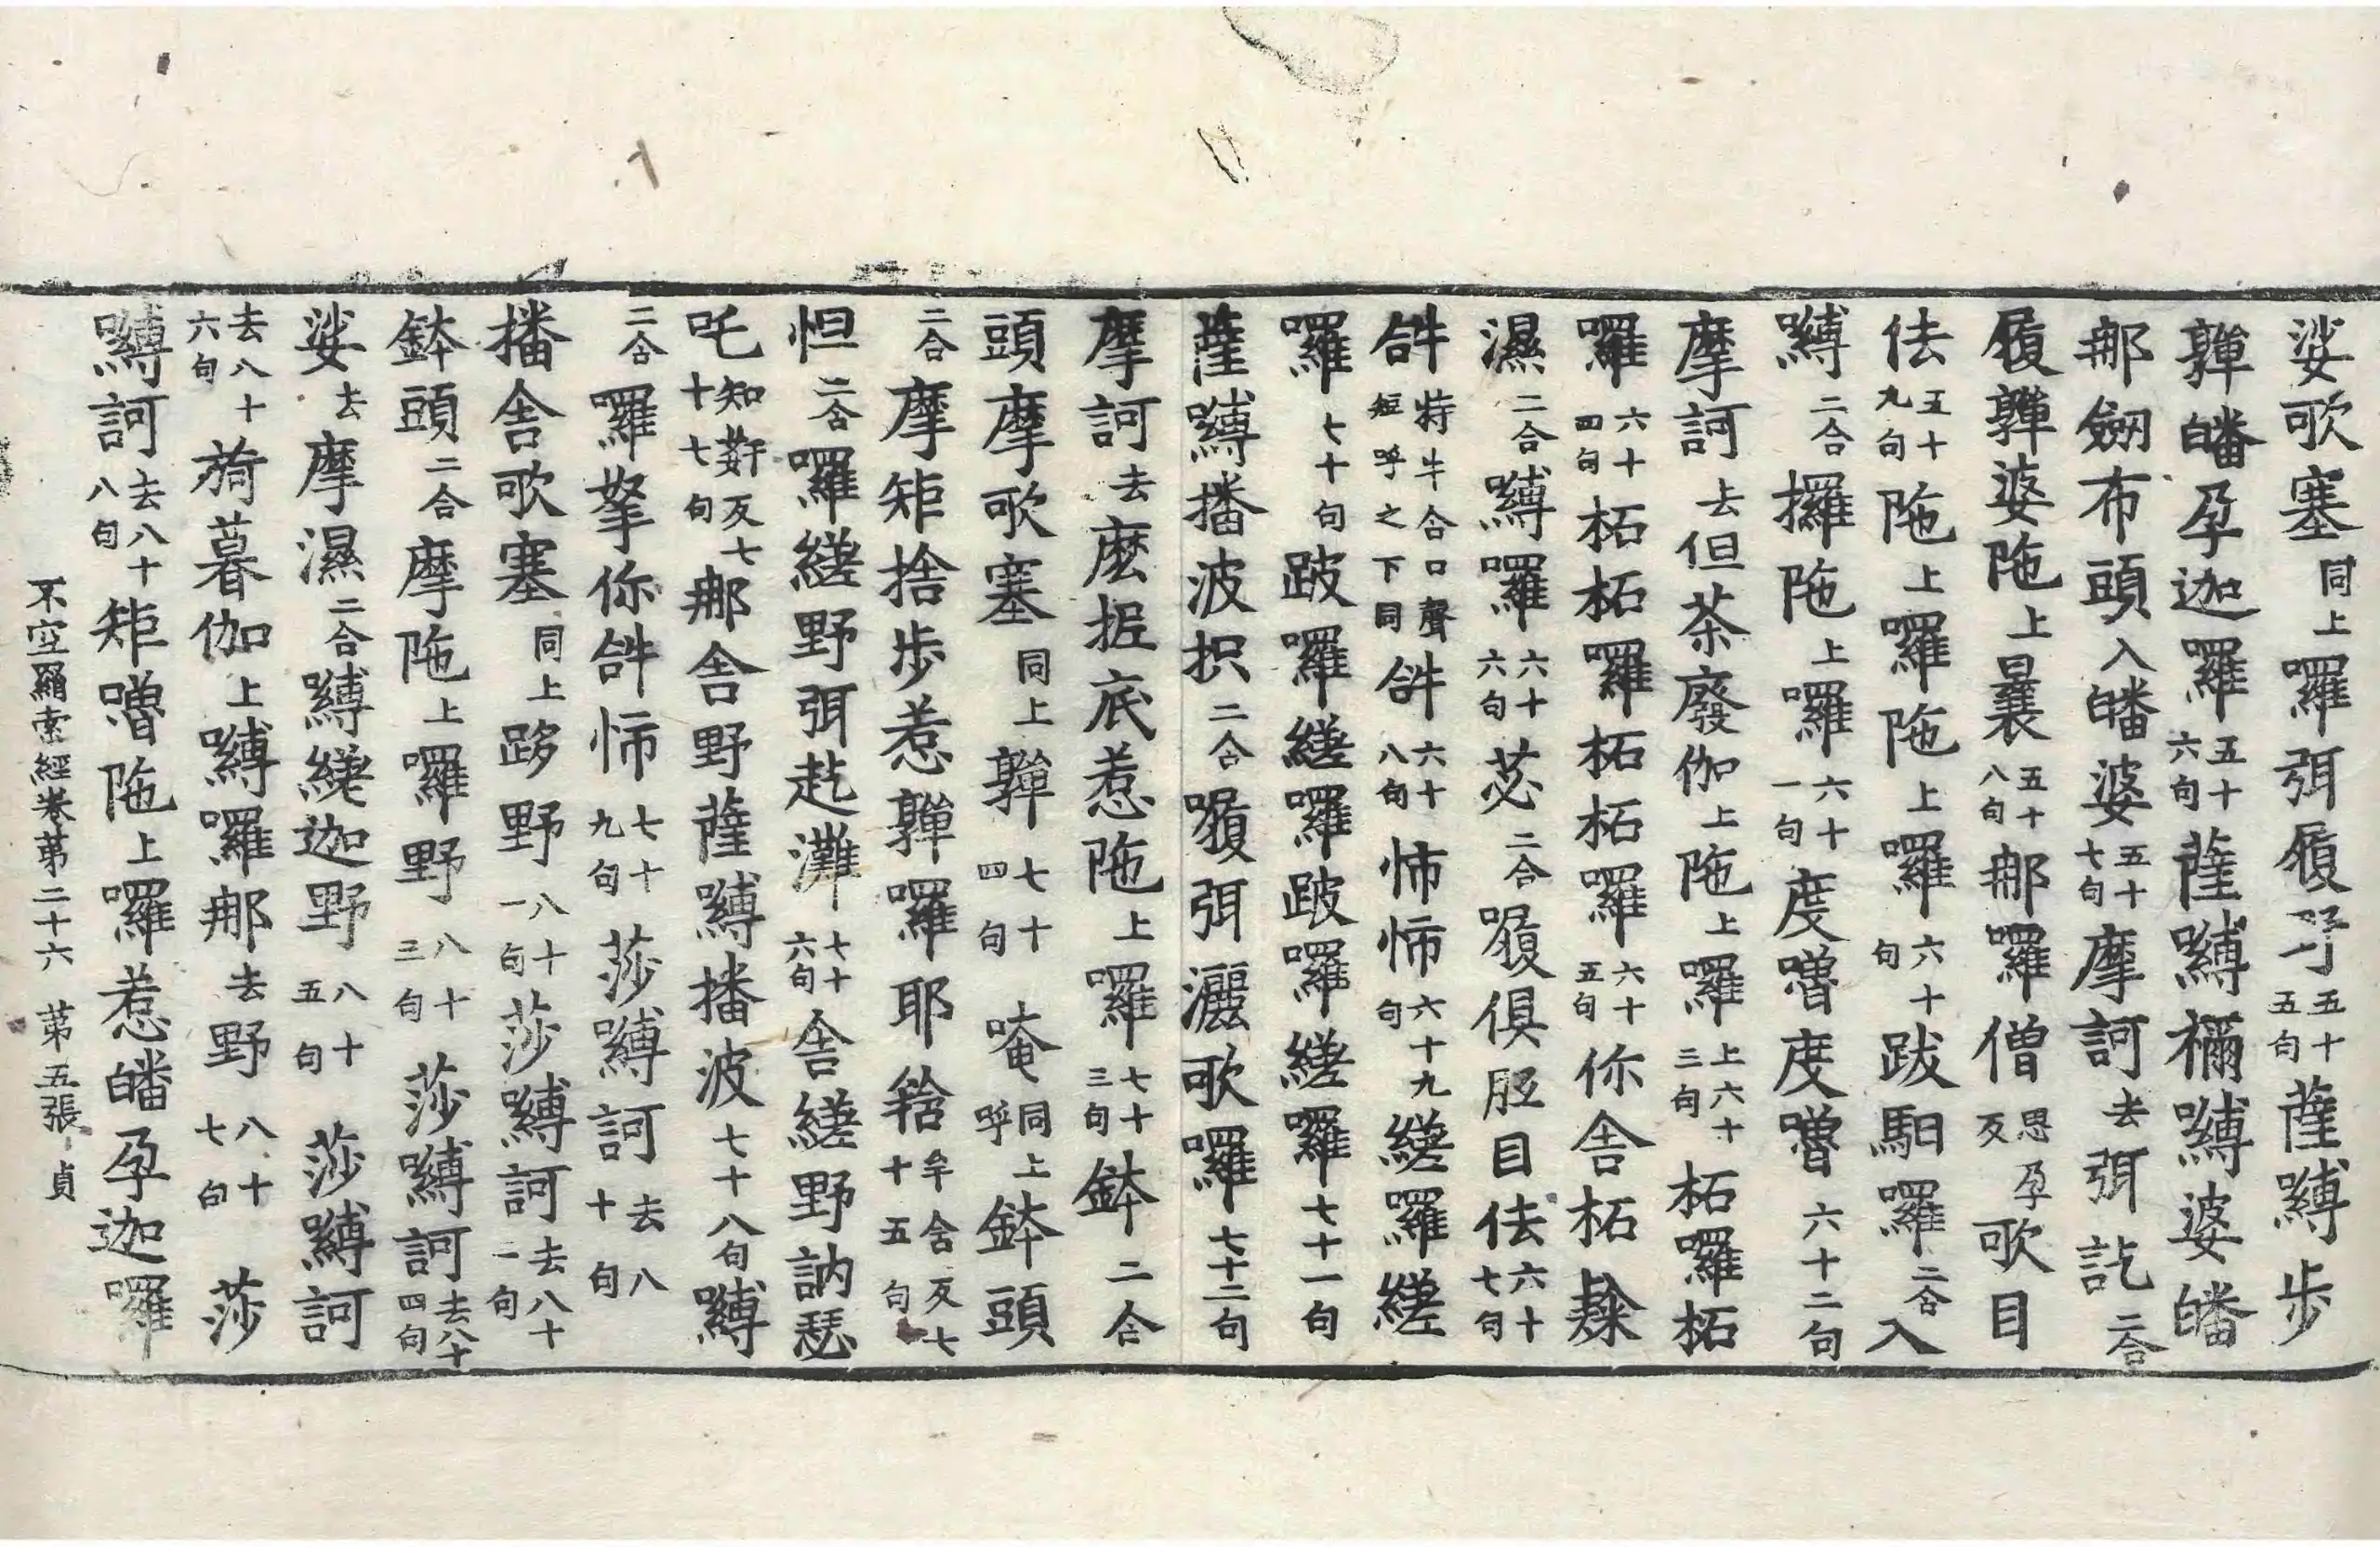 娑歌塞同上囉弭履𭉨五十五句薩嚩步
鞸皤孕迦囉五十六句薩嚩禰嚩婆皤
那劒布頭入皤婆五十七句摩訶去弭訖二合
履鞸婆陁上曩五十八句那囉僧思孕反歌目
佉五十九句陁上囉陁上囉六十句跋馹囉二合入
嚩二合攞陁上囉六十一句度嚕度嚕六十二句
摩訶去但茶廢伽上陁上囉上六十三句柘囉柘
囉六十四句柘柘囉柘柘囉六十五句你舍柘𨽻
濕二合嚩囉六十六句苾二合嚘俱胝目佉六十七句
𤙖特牛合口聲短呼之下同𤙖六十八句怖怖六十九句縒囉縒
囉七十句跛囉縒囉跛囉縒囉七十一句
薩嚩播波抧二合嚘弭灑歌囉七十二句
摩訶去麼抳底惹陁上囉七十三句鉢二合
頭摩歌塞同上鞸七十四句唵同上呼鉢頭
二合摩矩捨步惹鞸囉耶㗨牟含反七十五句
怛二合囉縒野弭訖灘七十六句舍縒野訥瑟
吒知𡛥反七十七句那舍野薩嚩播波七十八句嚩
二合囉拏你𤙖怖七十九句莎嚩訶去八十句
播舍歌塞同上跢野八十一句莎嚩訶去八十二句
鉢頭二合摩陁上囉野八十三句莎嚩訶去八十四句
娑去摩濕二合嚩縒迦野八十五句莎嚩訶
去八十六句旖暮伽上嚩囉那去野八十七句莎
嚩訶去八十八句矩嚕陁上囉惹皤孕迦囉
不空羂索經卷第二十六 第五張 貞